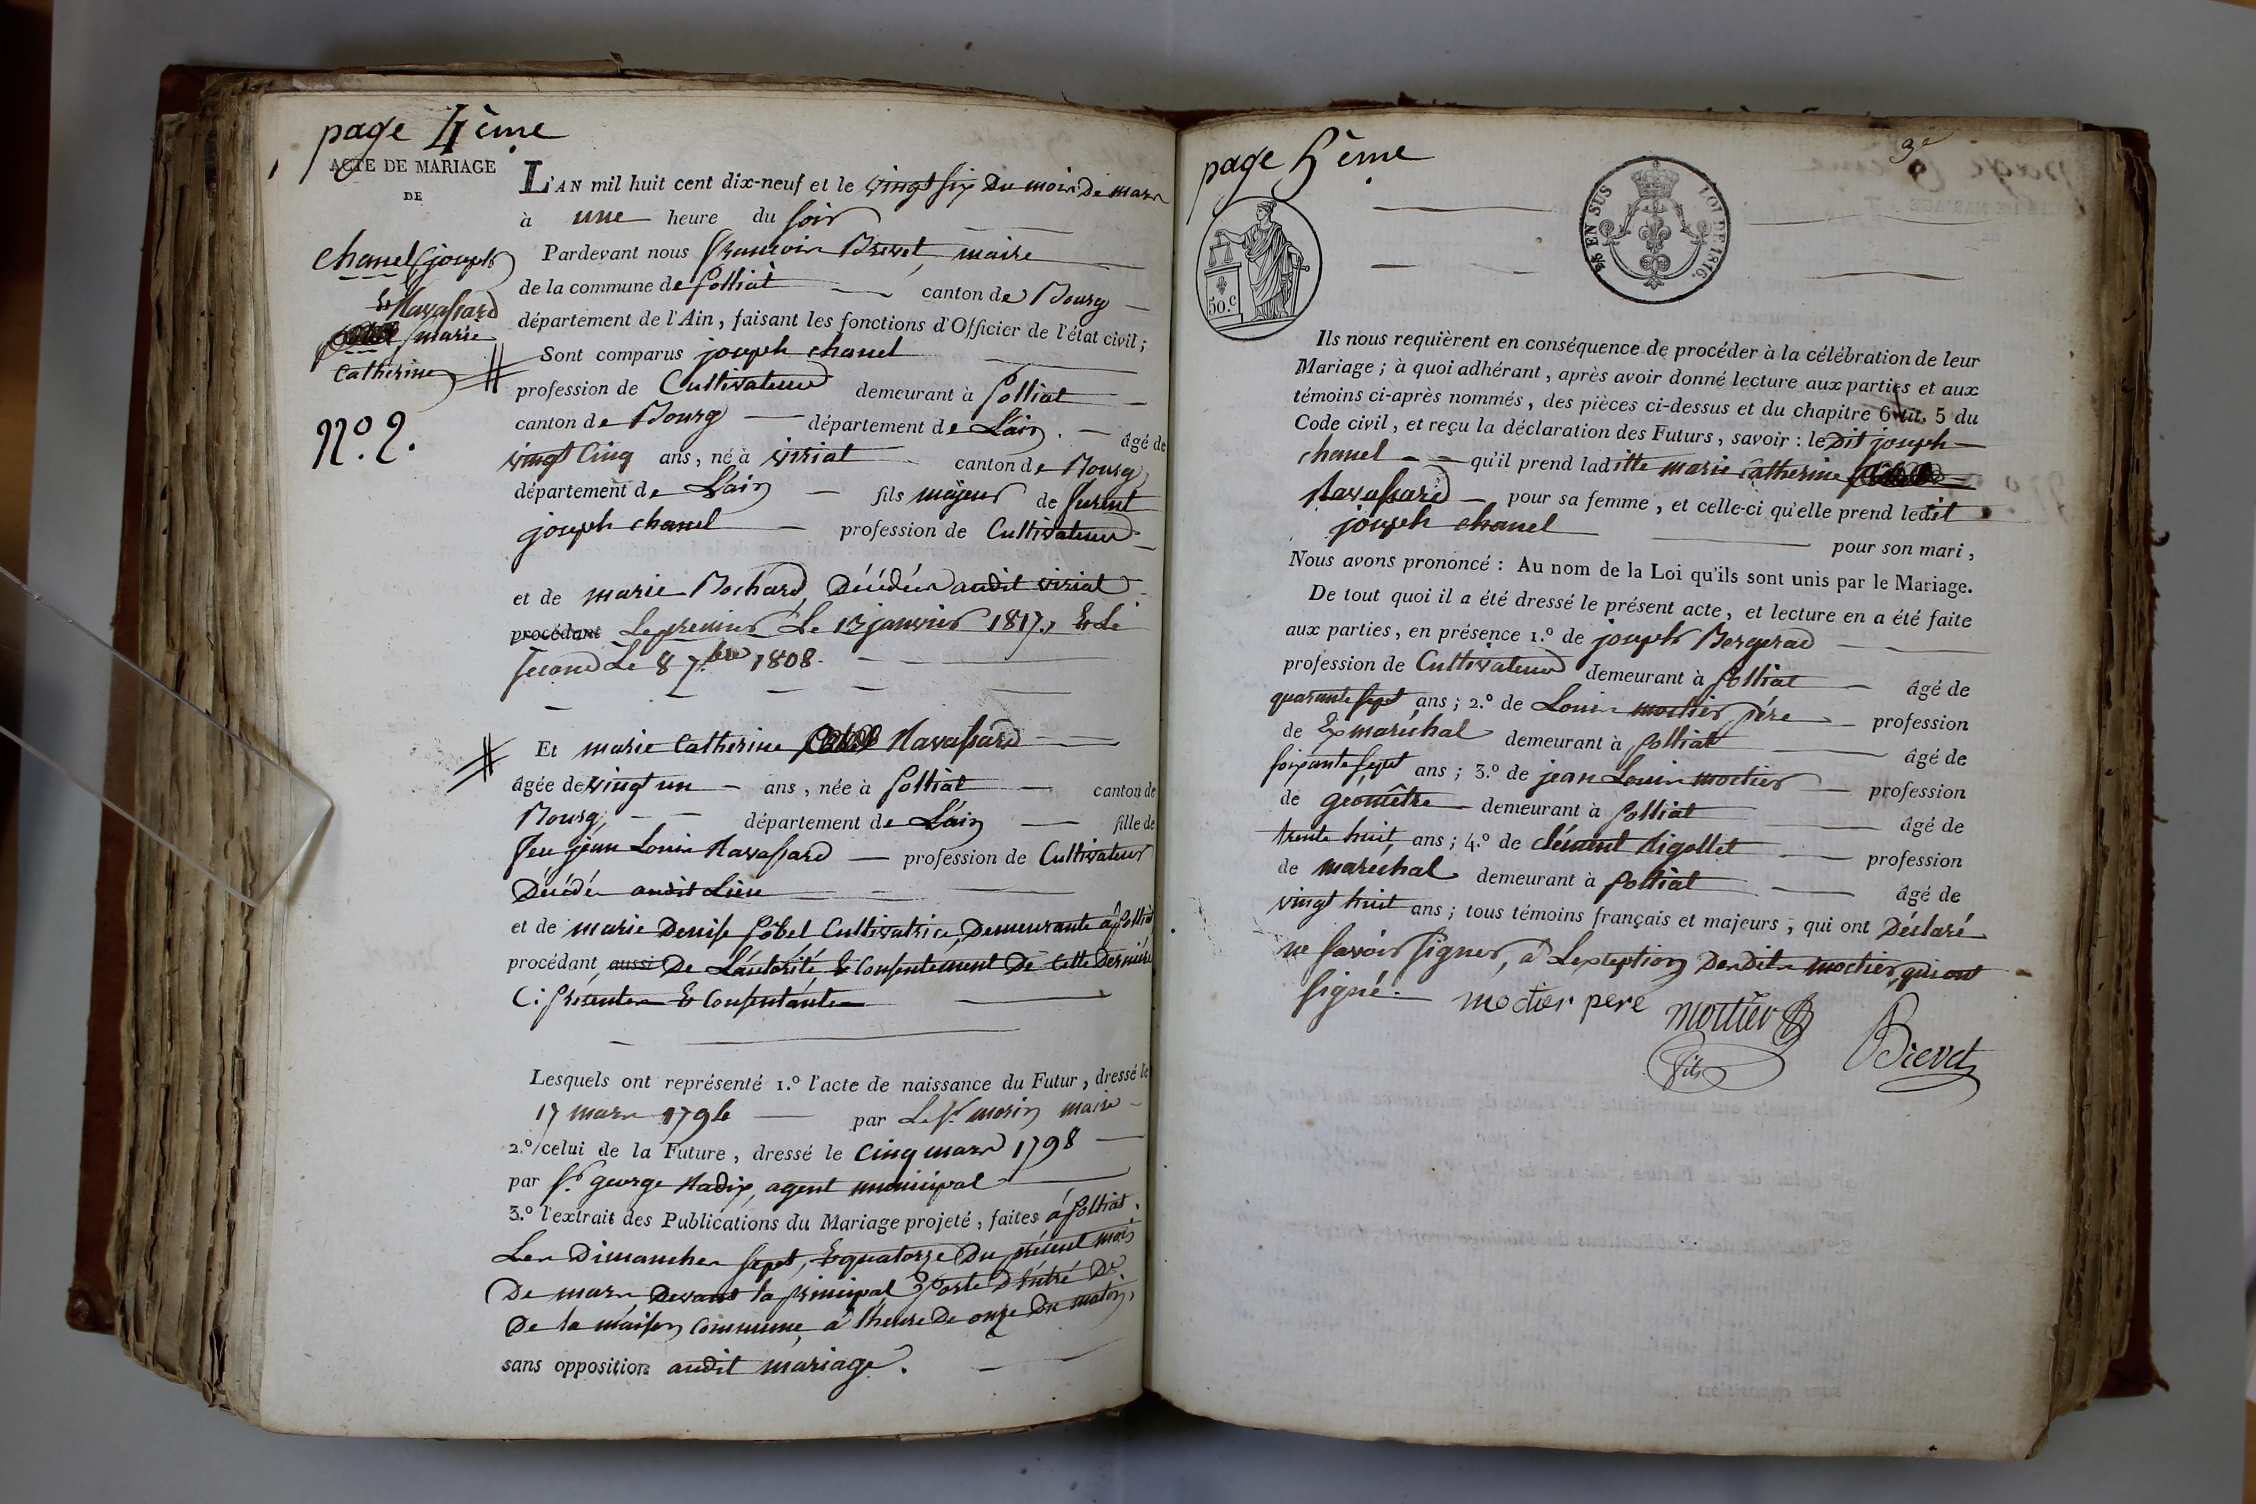 page 4ème
ACTE DE MARIAGE
DE
chanel joseph
& Navassard
marie
Catherine
N.º 2.
L'AN mil huit cent dix-neuf et le vingt six du mois de mars
à une heure du soir
Pardevant nous francois Brevet, maire
de la commune de polliat canton de Bourg
département de l'Ain, faisant les fonctions d'Officier de l'état civil;
Sont comparus joseph chanel
profession de Cultivateur demeurant à polliat
canton de Bourg département de L'ain âgé de
vingt Cinq ans, né à viriat canton de Bourg
département de L'ain fils majeur de furent
joseph chanel profession de Cultivateur
et de marie Bochard, Décédés audit viriat
procédant Le premier Le 13 janvier 1817, & Le
second Le 8 7.bre 1808.
Et marie Catherine Navassard
âgée de vingt un ans, née à polliat canton de
Bourg, département de L'ain fille de
feu jean Louis Navassard profession de Cultivateur
Décédé audit Lieu
et de marie Denise pobel Cultivatrice, Demeurante à polliat
procédant aussi De L'autorité & Consentement De Cette Dernière
Ci présente & Consentante
Lesquels ont représenté 1.º l'acte de naissance du Futur, dressé le
17 mars 1794 par Le S.r morin maire
2.º celui de la Future, dressé le Cinq mars 1798
par S.r george Nadix, agent municipal
3.º l'extrait des Publications du Mariage projeté, faites à polliat,
Les Dimanches sept, & quatorze Du présent mois
De mars, Devant la principal porte D'entré De
De la maison Commune, à l'heure De onze Du matin,
sans opposition audit mariage.
page 5ème
3e
50.c
EN SUS LOI DE 1816.
Ils nous requièrent en conséquence de procéder à la célébration de leur
Mariage; à quoi adhérant, après avoir donné lecture aux parties et aux
témoins ci-après nommés, des pièces ci-dessus et du chapitre 6 tit. 5 du
Code civil, et reçu la déclaration des Futurs, savoir: le Dit joseph
chanel qu'il prend laditte marie Catherine
Navassard pour sa femme, et celle-ci qu'elle prend ledit
joseph chanel pour son mari,
Nous avons prononcé: Au nom de la Loi qu'ils sont unis par le Mariage.
De tout quoi il a été dressé le présent acte, et lecture en a été faite
aux parties, en présence 1.º de joseph Bergerad
profession de Cultivateur demeurant à polliat âgé de
quarante sept ans; 2.º de Louis moctier père profession
de Exmaréchal demeurant à polliat âgé de
soixante sept ans; 3.º de jean Louis moctier profession
de geomêtre demeurant à polliat âgé de
trente huit ans; 4.º de clément Rigollet profession
de maréchal demeurant à polliat âgé de
vingt huit ans; tous témoins français et majeurs, qui ont Déclaré
ne savoir signer, à L'exception Desdits moctier, qui ont
signé. moctier pere moctier
fils Brevet